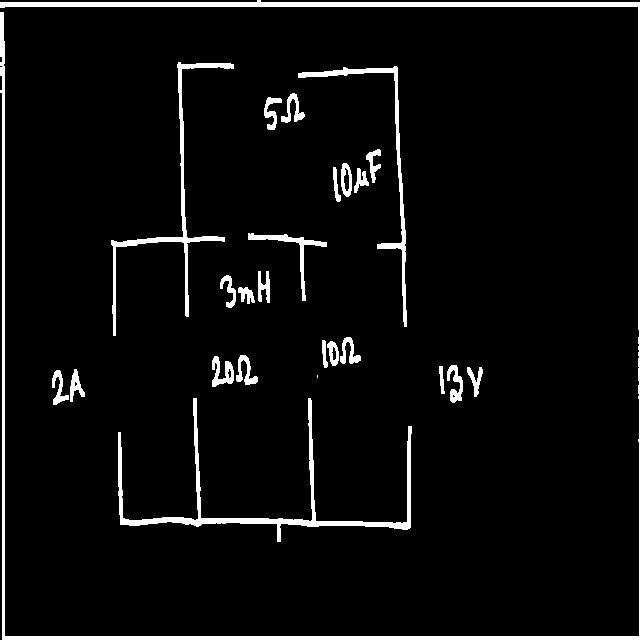 5Ω
10µF
3mH
2A
20Ω
10Ω
13V